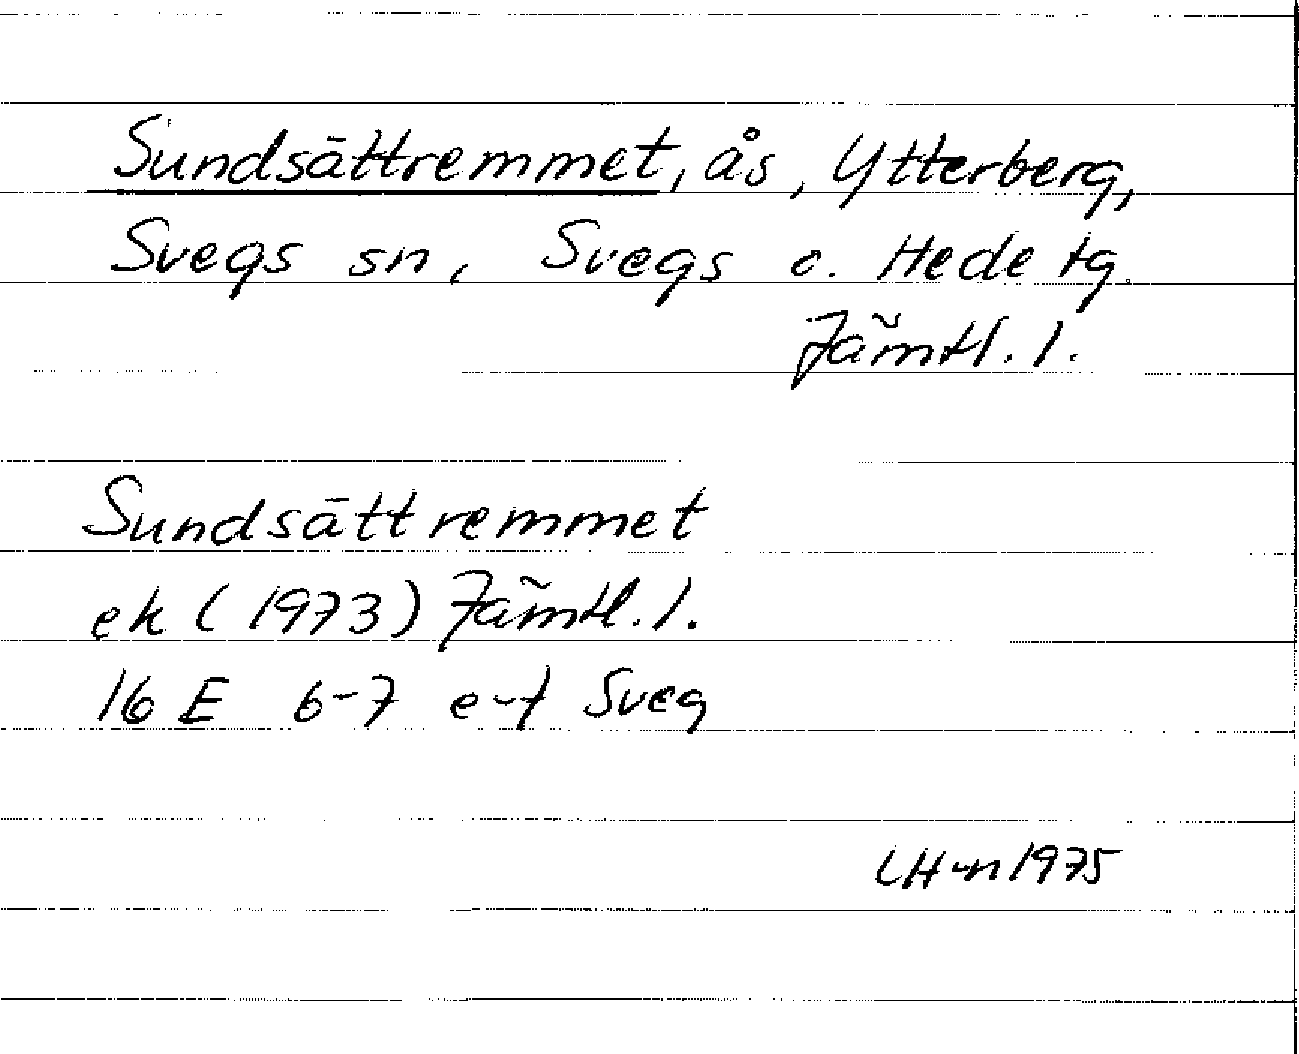 Sundsättremmet, ås, Ytterberg,
Svegs sn, Svegs o. Hede tg.
Jämtl. l.
Sundsättremmet
ek (1973) Jämtl. l.
16 E 6-7 e-f Sveg
LH-n 1975